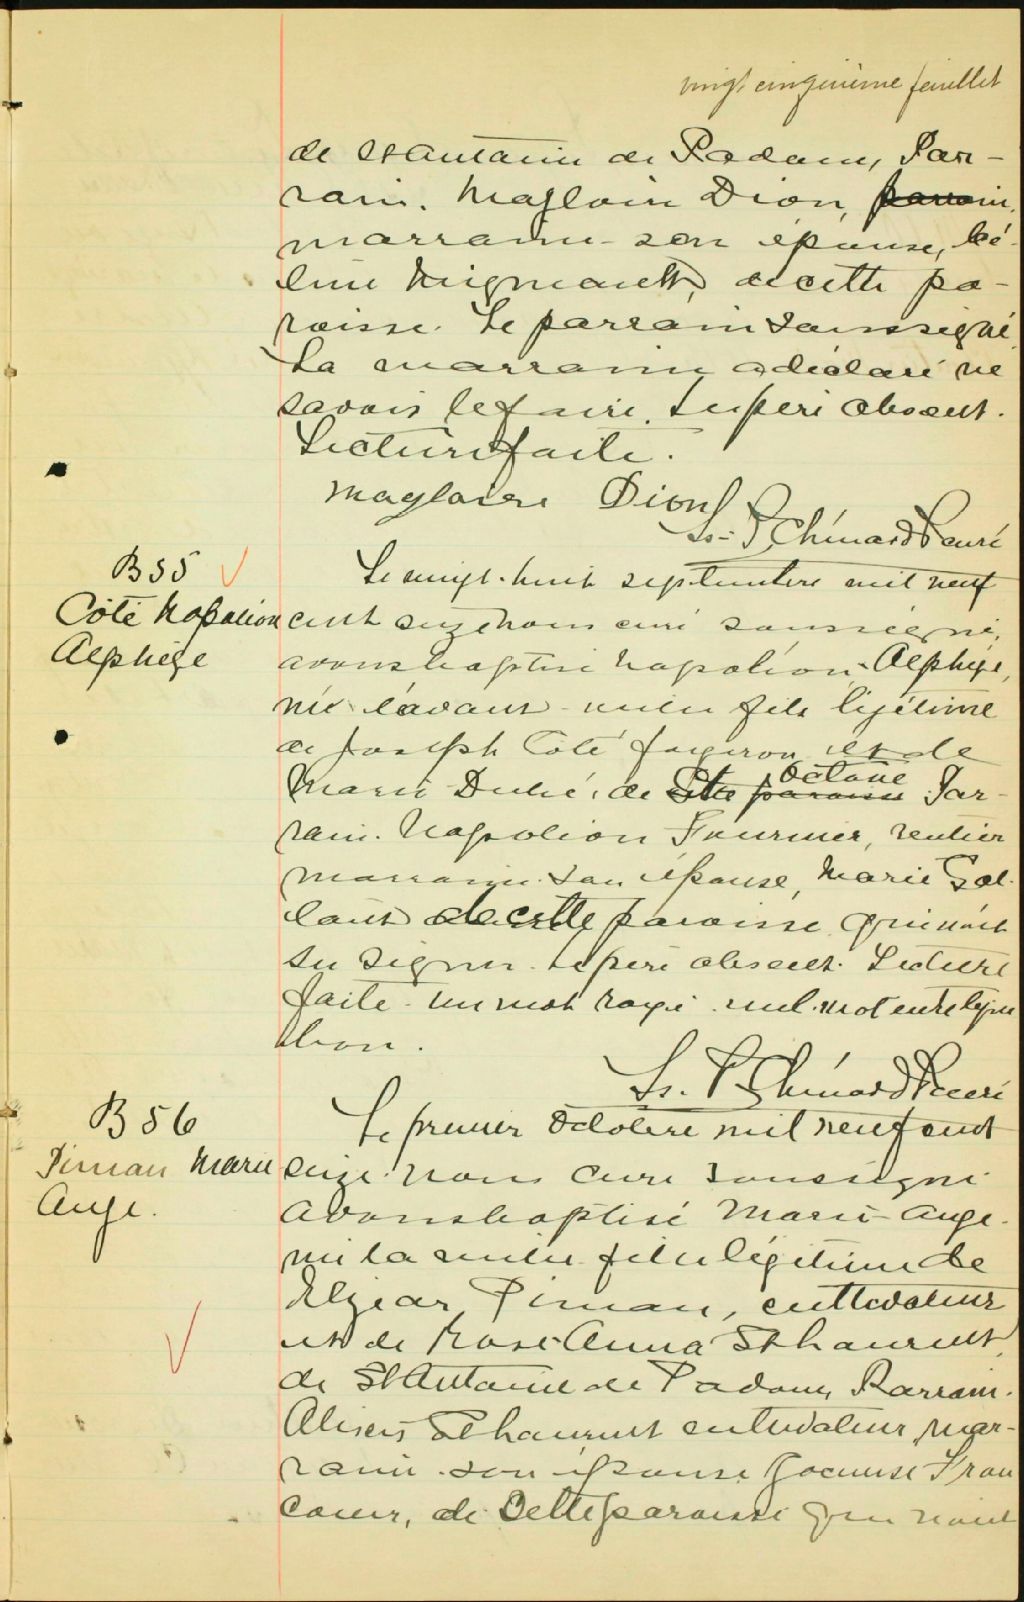 vingt cinquième feuillet
de St Antoine de Padoue, Par-
rain. Magloire Dion, parrain,
marraine son épouse, Cé-
line de cette pa-
roisse. Le parrain soussigné
La marraine a déclaré ne
savoir le faire. Le père absent.
Lecture faite.
Magloire Dion
Ls-P. Chénard Ptre curé
B 55
Côté Napoléon
Alphége
Le vingt-huit septembre mil neuf
cent seize nous curé soussigné,
avons baptisé Napoléon-Alphége,
né l'avant-veille fils légitime
de Joseph Côté forgeron et de
Marie Dubé, de cette paroisse Octave Par-
rain. Napoléon Fournier, rentier
marraine son épouse, Marie Gal-
lant de cette paroisse qui n'ont
su signer. Le père absent. Lecture
faite. un mot rayé nul. mot entre ligne
bon.
Ls. P. Chénard Ptre curé
B 56
Pineau Marie
Ange.
Le premier Octobre mil neuf cent
seize nous curé soussigné
avons baptisé Marie-Ange.
née la veille fille légitime de
Elzéar Pineau, cultivateur
et de Rose-Anna St Laurent,
de St Antoine de Padoue, Parrain.
St Laurent cultivateur, mar-
raine son épouse Fran
coeur, de Cette paroisse qui n'ont